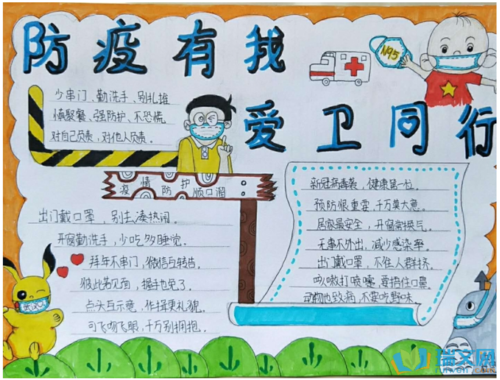 防疫有我
N95
爱卫同行
少串门、勤洗手、别扎堆
慎聚餐、强防护、不恐慌
对自己负责、对他人负责.
疫情防护顺口溜
出门戴口罩，别往凑热闹.
开窗勤洗手，少吃多睡觉.
拜年不串门，微信与转告.
彼此第见面，握手也免了.
点头互示意，作揖更礼貌.
可飞吻飞喝，千万别拥抱.
新冠病毒袭，健康第一位.
预防很重要，千万莫大意.
居家最安全，开窗常换气.
无事不外出，减少感染率.
出门戴口罩，不往人群挤.
咳嗽打喷嚏，要捂住口鼻.
动物也致病，不要吃野味.